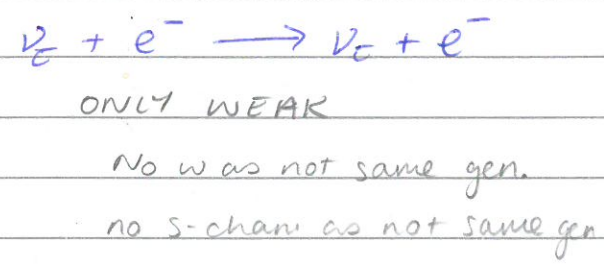 ν_τ + e⁻ → ν_τ + e⁻
ONLY WEAK
No W as not same gen.
no s-chan. as not same gen